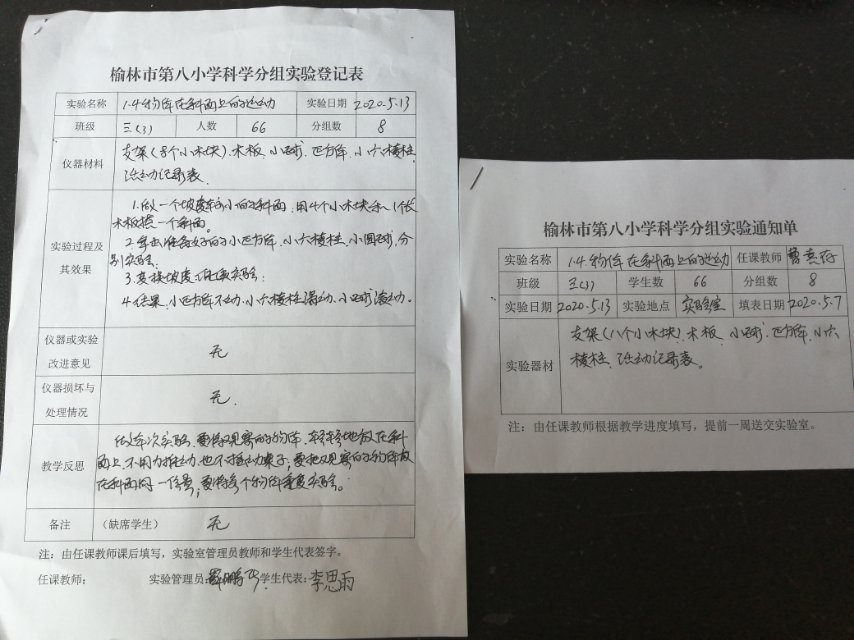 榆林市第八小学科学分组实验登记表
实验名称 1.4物体在斜面上的运动 实验日期 2020.5.13
班级 三(3) 人数 66 分组数 8
仪器材料 支架(8个小木块).木板.小球.正方体.小六棱柱.
活动记录表.
实验过程及
其效果
1.做一个坡度较小的斜面,用4个小木块和1个长
木板搭一个斜面。
的小正方体,小六棱柱,小圆球,分
别实验.
3.变换坡度,重复实验.
4.结果,小正方体不动,小六棱柱滑动,小球滚动。
仪器或实验
改进意见 无
仪器损坏与
处理情况 无.
教学反思
做本次实验,要将观察的物体,轻轻地放在斜
面上,不用力推动,也不推动桌子,要把观察的物体放
在斜面同一位置,要将每个物体重复实验。
备注 (缺席学生) 无
注:由任课教师课后填写,实验室管理员教师和学生代表签字。
任课教师: 实验管理员: 学生代表:李思雨
榆林市第八小学科学分组实验通知单
实验名称 1.4物体在斜面上的运动 任课教师
班级 三(3) 学生数 66 分组数 8
实验日期 2020.5.13 实验地点 实验室 填表日期 2020.5.7
实验器材 支架(八个小木块).木板.小球.正方体.小六
棱柱.活动记录表。
注:由任课教师根据教学进度填写,提前一周送交实验室。